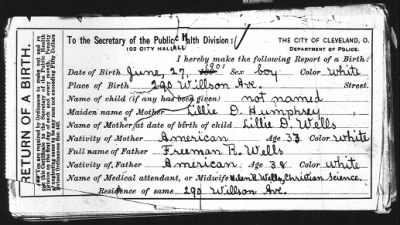 RETURN OF A BIRTH.
To the Secretary of the Public Health Division:
102 CITY HALL
THE CITY OF CLEVELAND, O.
DEPARTMENT OF POLICE.
I hereby make the following Report of a Birth:
Date of Birth June, 27, 1901 Sex boy Color White
Place of Birth 290 Willson Ave. Street.
Name of child (if any has been given) not named
Maiden name of Mother Lillie D. Humphrey
Name of Mother at date of birth of child Lillie D. Wells
Nativity of Mother American Age 33 Color White
Full name of Father Freeman R. Wells
Nativity of Father American Age 38 Color White
Name of Medical attendant, or Midwife Helen R. Wells, Christian Science.
Residence of same 290 Willson Ave.